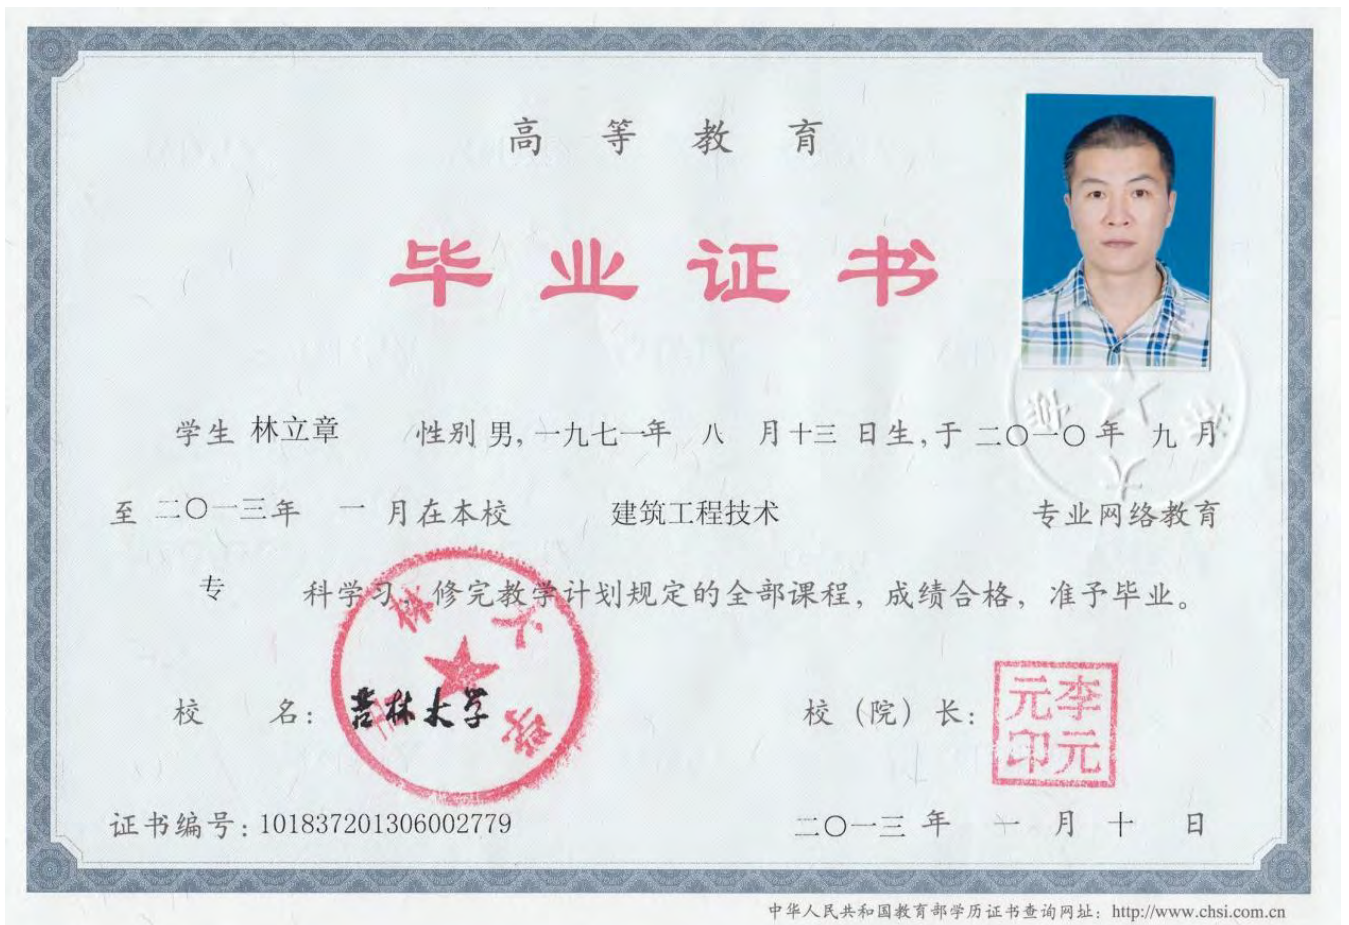 高等教育
毕业证书
学生 林立章 性别 男, 一九七一年 八 月十三 日生, 于 二〇一〇 年 九 月
至 二〇一三年 一 月在本校 建筑工程技术 专业网络教育
专 科学习, 修完教学计划规定的全部课程, 成绩合格, 准予毕业。
校 名: 吉林大学
吉林大学
校（院）长:
李元元印
证书编号: 101837201306002779
二〇一三 年 一 月 十 日
中华人民共和国教育部学历证书查询网址: http://www.chsi.com.cn